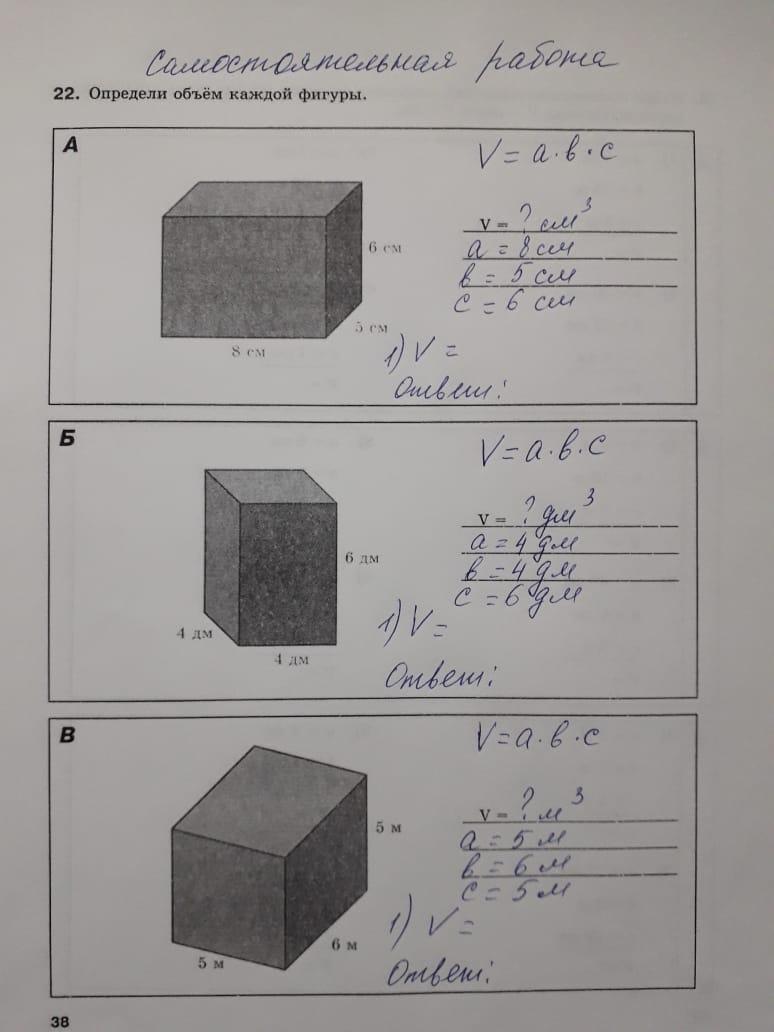 Самостоятельная работа
22. Определи объём каждой фигуры.
А
V = а·в·с
6 см
5 см
8 см
V = ? см³
а = 8 см
в = 5 см
с = 6 см
1) V =
Ответ:
Б
V = а·в·с
6 дм
4 дм
4 дм
V = ? дм³
а = 4 дм
в = 4 дм
с = 6 дм
1) V =
Ответ:
В
V = а·в·с
5 м
6 м
5 м
V = ? м³
а = 5 м
в = 6 м
с = 5 м
1) V =
Ответ:
38